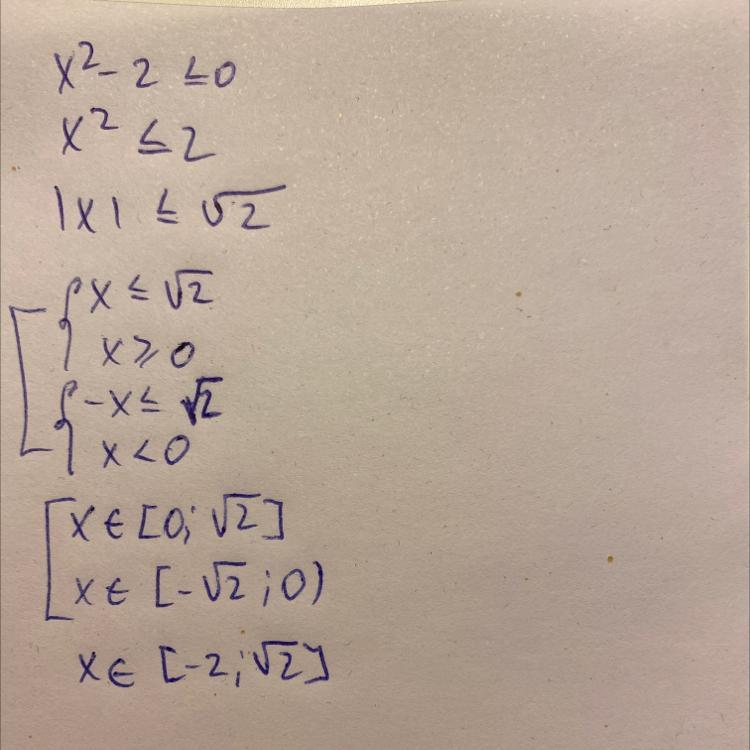 x² - 2 ≤ 0
x² ≤ 2
|x| ≤ √2
x ≤ √2
x ⩾ 0
-x ≤ √2
x < 0
x ∈ [0; √2]
x ∈ [-√2; 0)
x ∈ [-2; √2]